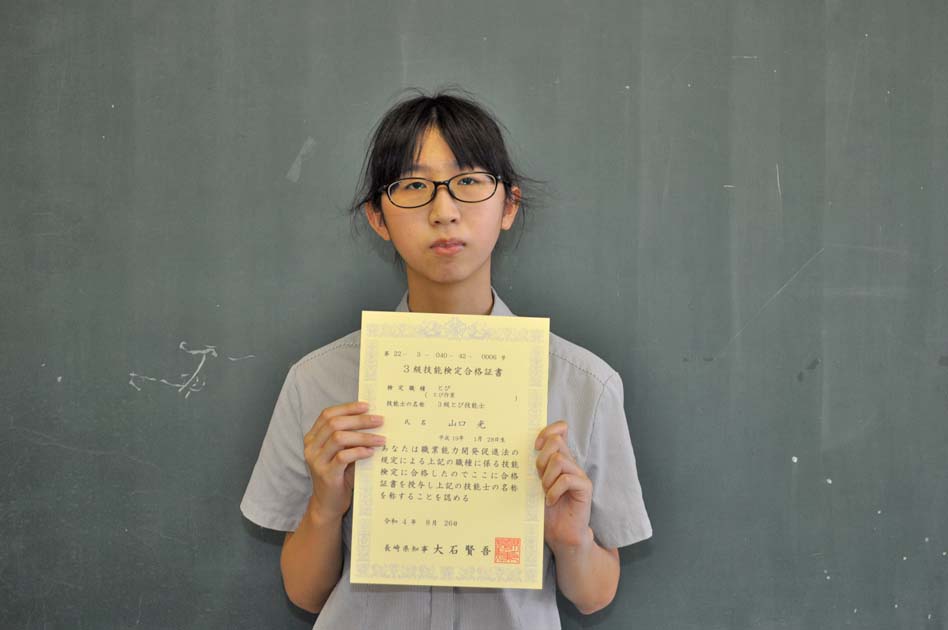 第 22 - 3 - 040 - 42 - 0006 号
3級技能検定合格証書
検定職種 とび
( とび作業 )
技能士の名称 3級とび技能士
氏名 山口 光
平成 19年 1月 28日生
あなたは職業能力開発促進法の
規定による上記の職種に係る技能
検定に合格したのでここに合格
証書を授与し上記の技能士の名称
を称することを認める
令和 4 年 8月 26日
長崎県知事 大石賢吾